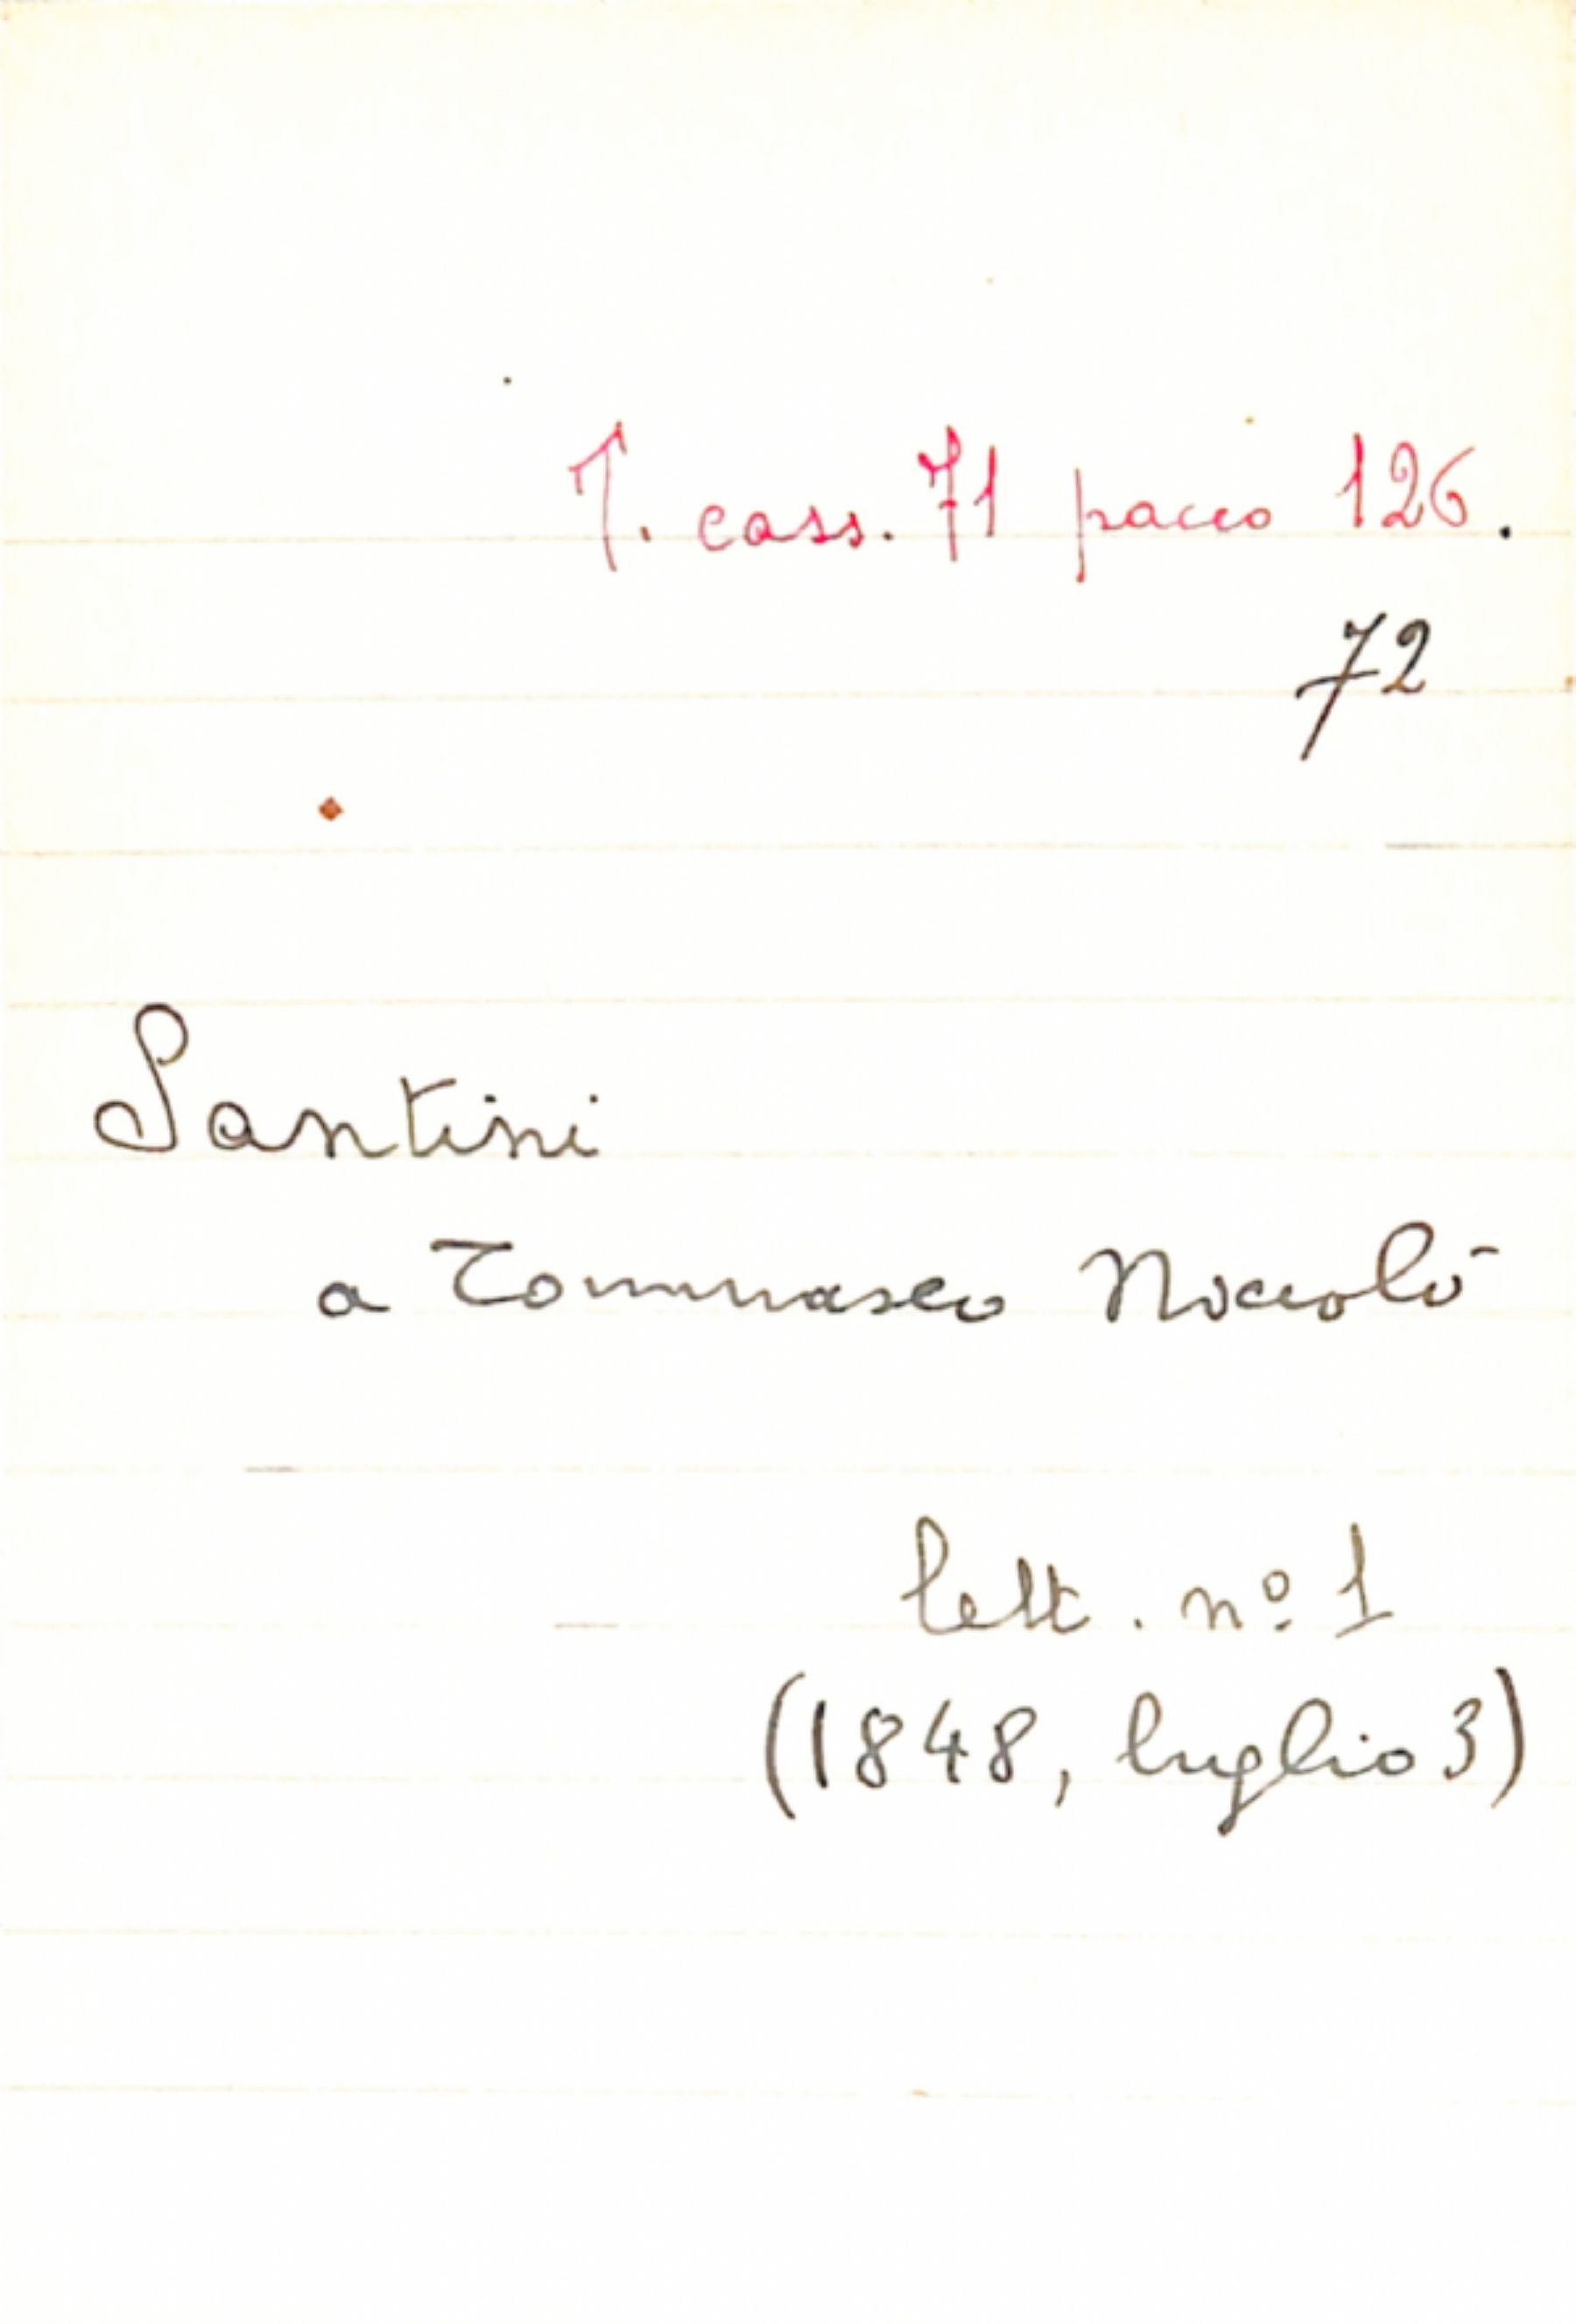 T. cass. 71 pacco 126.
72
Santini
a Tommaseo Niccolò
lett. nº 1
(1848, luglio 3)